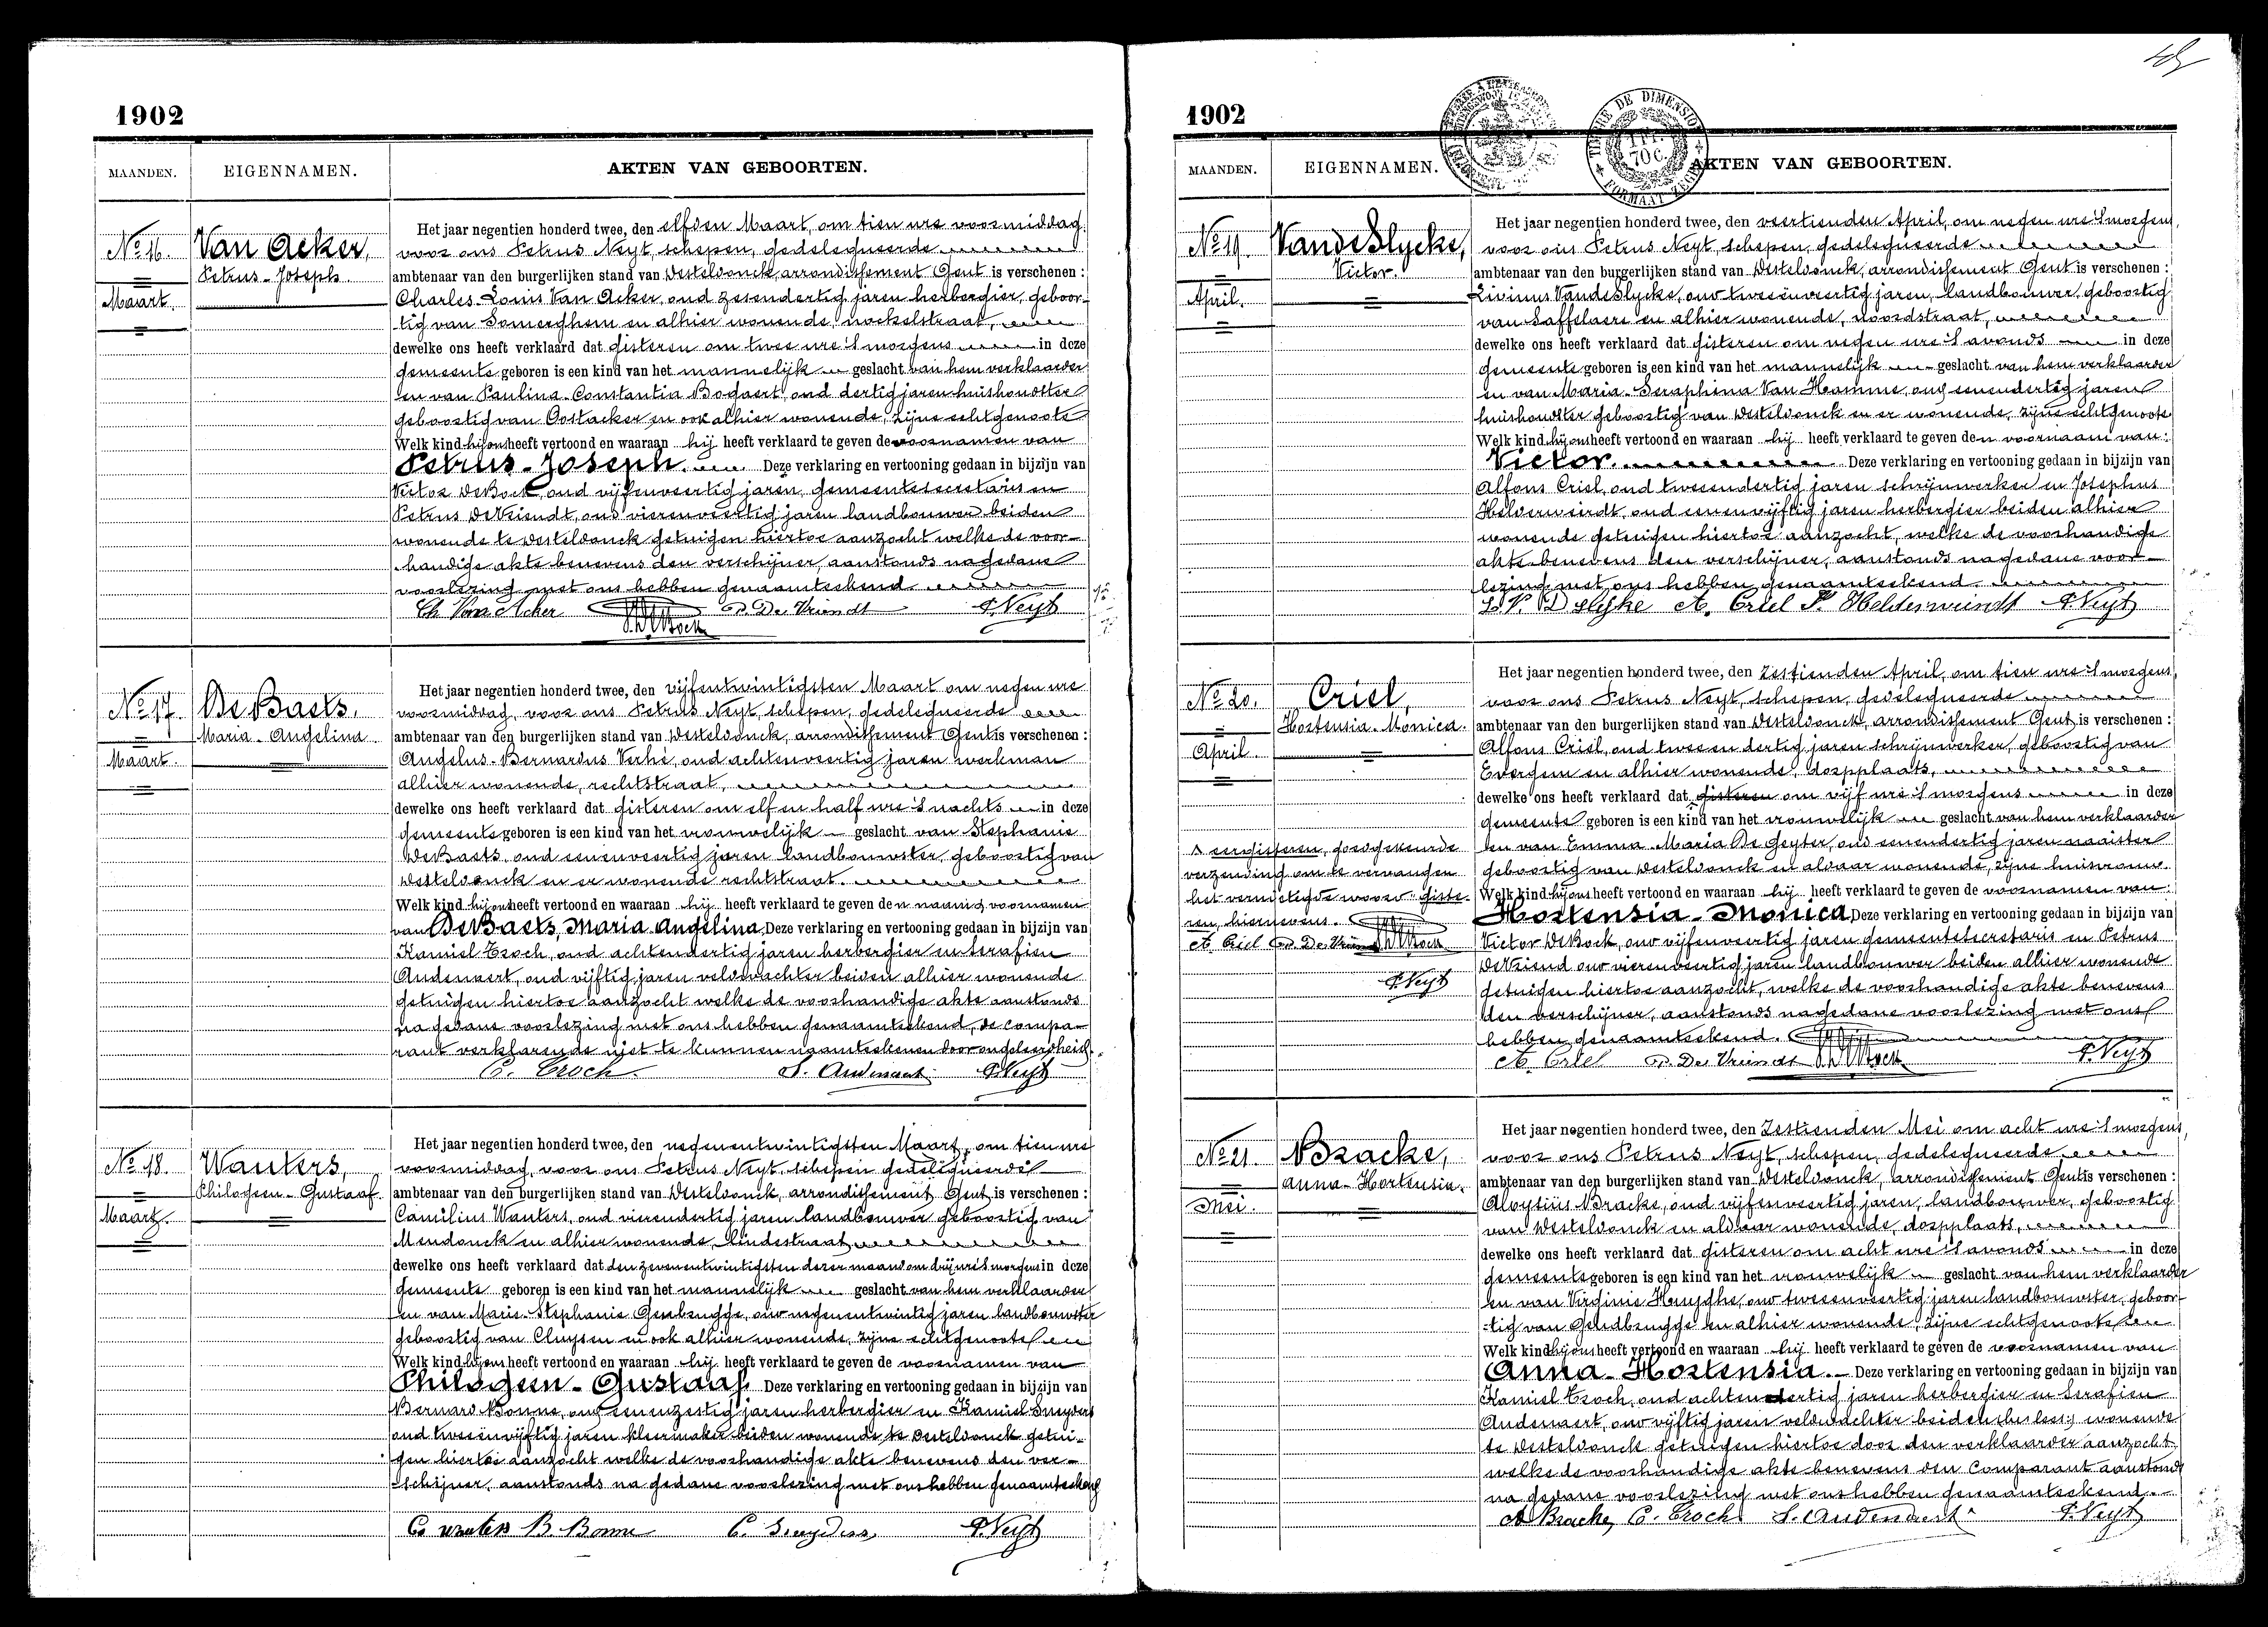 1902
MAANDEN. EIGENNAMEN. AKTEN VAN GEBOORTEN.
No 16. Van Acker,
Petrus-Joseph.
Maart.
Het jaar negentien honderd twee, den elfden Maart, om tien ure voormiddag
voor ons Petrus Neyt, schepen, gedelegueerde
ambtenaar van den burgerlijken stand van Desteldonck, arrondissement Gent is verschenen :
Charles-Louis Van Acker, oud zesendertig jaren herbergier, geboor-
tig van Somerghem en alhier wonende, nockelstraat,
dewelke ons heeft verklaard dat gisteren om twee ure 's morgens in deze
gemeente geboren is een kind van het mannelijk geslacht van hem verklaarder
en van Paulina-Constantia Bogaert oud dertig jaren huishoudster
geboortig van Oostacker en ook alhier wonende, zijne echtgenoote
Welk kind hij ons heeft vertoond en waaraan hij heeft verklaard te geven de voornamen van
Petrus-Joseph. Deze verklaring en vertooning gedaan in bijzijn van
Victor DeBock, oud vijfenveertig jaren, gemeentesecretaris en
Petrus DeVriendt, oud vierenveertig jaren landbouwer beiden
wonende te Desteldonck getuigen hiertoe aanzocht welke de voor-
handige akte benevens den verschijner, aanstonds nagedane
voorlezing met ons hebben genaamteekend.
Ch Van Acker P. De Vriendt P. Neyt
No 17. DeBaets,
Maria-Angelina.
Maart.
Het jaar negentien honderd twee, den vijfentwintigsten Maart om negen ure
voormiddag, voor ons Petrus Neyt, schepen, gedelegueerde
ambtenaar van den burgerlijken stand van Desteldonck, arrondissement Gent is verschenen :
Angelus-Bernardus Verhé, oud achtenveertig jaren werkman
alhier wonende, rechtstraat,
dewelke ons heeft verklaard dat gisteren om elf en half ure 's nachts in deze
gemeente geboren is een kind van het vrouwelijk geslacht van Stephanie
DeBaets, oud eenenveertig jaren landbouwster, geboortig van
Desteldonck en er wonende rechtstraat.
Welk kind hij ons heeft vertoond en waaraan hij heeft verklaard te geven den naam & voornamen
van DeBaets, Maria Angelina. Deze verklaring en vertooning gedaan in bijzijn van
Kamiel Troch, oud achtendertig jaren herbergier en Serafien
Audenaert, oud vijftig jaren veldwachter beiden alhier wonende
getuigen hiertoe aanzocht welke de voorhandige akte aanstonds
na gedane voorlezing met ons hebben genaamteekend, de compa-
rant verklarende niet te kunnen naamteekenen door ongeleerdheid.
C. Troch. S. Audenaert P. Neyt
No 18. Wauters,
Philogeen-Gustaaf.
Maart.
Het jaar negentien honderd twee, den negenentwintigsten Maart, om tien ure
voormiddag, voor ons Petrus Neyt, schepen gedelegueerde
ambtenaar van den burgerlijken stand van Desteldonck, arrondissement Gent is verschenen :
Camilius Wauters, oud vierendertig jaren landbouwer geboortig van
Mendonck en alhier wonende, lindestraat
dewelke ons heeft verklaard dat den zevenentwintigsten dezer maand om drij ure 's morgens in deze
gemeente geboren is een kind van het mannelijk geslacht van hem verklaarder
en van Marie-Stephanie Gembrugge, oud negenentwintig jaren landbouwster
geboortig van Cluysen en ook alhier wonende, zijne echtgenoote
Welk kind hij ons heeft vertoond en waaraan hij heeft verklaard te geven de voornamen van
Philogeen-Gustaaf. Deze verklaring en vertooning gedaan in bijzijn van
Bernard Bonne, oud eenenzestig jaren herbergier en Kamiel Snyders
oud tweeënvijftig jaren kleermaker beiden wonende te Desteldonck getui-
gen hiertoe aanzocht welke de voorhandige akte benevens den ver-
schijner, aanstonds na gedane voorlezing met ons hebben genaamteekend
C wauters B. Bonne C. Snyders P. Neyt
1902
TIMBRE DE DIMENSION
1 FR.
70 C.
FORMAAT ZEGEL
MAANDEN. EIGENNAMEN. AKTEN VAN GEBOORTEN.
No 19. VandeSlycke,
Victor.
April.
Het jaar negentien honderd twee, den veertienden April, om negen ure 's morgens,
voor ons Petrus Neyt, schepen, gedelegueerde
ambtenaar van den burgerlijken stand van Desteldonck, arrondissement Gent is verschenen :
Livinus VandeSlycke, oud tweeënveertig jaren, landbouwer, geboortig
van Saffelaere en alhier wonende, noordstraat,
dewelke ons heeft verklaard dat gisteren om negen ure 's avonds in deze
gemeente geboren is een kind van het mannelijk geslacht van hem verklaarder
en van Maria-Seraphina Van Hamme, oud eenendertig jaren
huishoudster geboortig van Desteldonck en er wonende, zijne echtgenoote
Welk kind hij ons heeft vertoond en waaraan hij heeft verklaard te geven den voornaam van:
Victor. Deze verklaring en vertooning gedaan in bijzijn van
Alfons Criel, oud tweeendertig jaren schrijnwerker en Josephus
Helderweirdt, oud eenenvijftig jaren herbergier beiden alhier
wonende getuigen hiertoe aanzocht, welke de voorhandige
akte benevens den verschijner, aanstonds nagedane voor-
lezing met ons hebben genaamteekend.
A. Criel Helderweirdt P. Neyt
No 20. Criel,
Hortensia-Monica.
April.
Het jaar negentien honderd twee, den zestienden April, om tien ure 's morgens,
voor ons Petrus Neyt, schepen, gedelegueerde
ambtenaar van den burgerlijken stand van Desteldonck, arrondissement Gent is verschenen :
Alfons Criel, oud tweeen dertig jaren schrijnwerker, geboortig van
Evergem en alhier wonende, dorpplaats,
dewelke ons heeft verklaard dat gisteren om vijf ure 's morgens in deze
gemeente geboren is een kind van het vrouwelijk geslacht van hem verklaarder
en van Emma-Maria De Geyter, oud eenendertig jaren naaister
geboortig van Desteldonck en aldaar wonende, zijne huisvrouw.
Welk kind hij ons heeft vertoond en waaraan hij heeft verklaard te geven de voornamen van:
Hortensia-Monica Deze verklaring en vertooning gedaan in bijzijn van
Victor DeBock, oud vijfenveertig jaren gemeentesecretaris en Petrus
DeVriend oud vierenveertig jaren landbouwer beiden alhier wonende
getuigen hiertoe aanzocht, welke de voorhandige akte benevens
den verschijner, aanstonds nagedane voorlezing met ons
hebben genaamteekend.
A. Criel P. De Vriendt P. Neyt
eergisteren, goedgekeurde
verzending om te vervangen
het vernietigde woord giste-
ren, hiernevens.
A. Criel P. De Vriendt
P. Neyt
No 21. Bracke,
Anna-Hortensia.
Mei.
Het jaar negentien honderd twee, den Zestienden Mei om acht ure 's morgens,
voor ons Petrus Neyt, schepen, gedelegueerde
ambtenaar van den burgerlijken stand van Desteldonck, arrondissement Gent is verschenen :
Aloysius Bracke, oud vijfenveertig jaren, landbouwer, geboortig
van Desteldonck en aldaar wonende, dorpplaats,
dewelke ons heeft verklaard dat gisteren om acht ure 's avonds in deze
gemeente geboren is een kind van het vrouwelijk geslacht van hem verklaarder
en van Virginie Huyghe, oud tweeenveertig jaren landbouwster, geboor-
tig van Gendbrugge en alhier wonende, zijne echtgenoote
Welk kind hij ons heeft vertoond en waaraan hij heeft verklaard te geven de voornamen van
Anna-Hortensia. Deze verklaring en vertooning gedaan in bijzijn van
Kamiel Troch, oud achtendertig jaren herbergier en Serafien
Audenaert, oud vijftig jaren veldwachter beiden wonende
te Desteldonck getuigen hiertoe door den verklaarder aanzocht
welke de voorhandige akte benevens den Comparant aanstonds
na gedane voorlezing met ons hebben genaamteekend.
A Bracke, C. Troch S. Audenaert P. Neyt